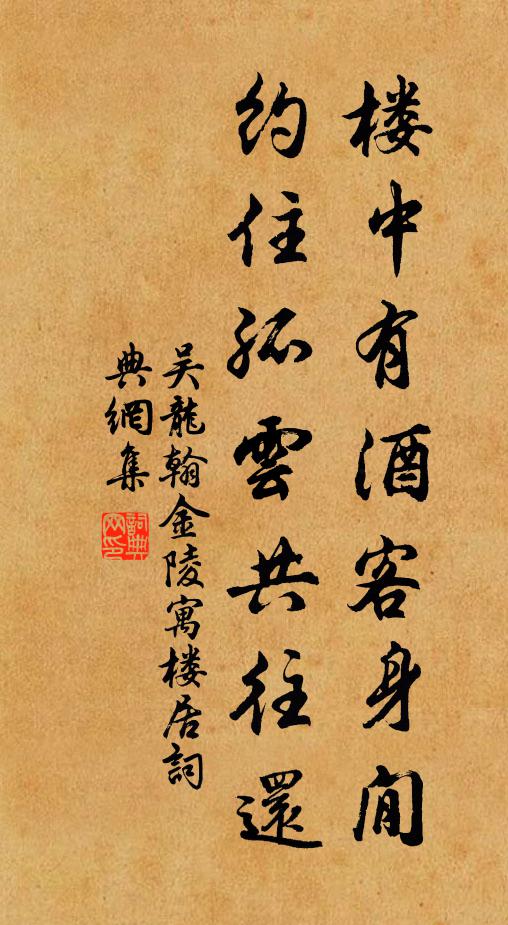 楼中有酒客身閒
約住孤雲共往還
吴龍翰金陵寓楼居詞
典網集
詞典網印